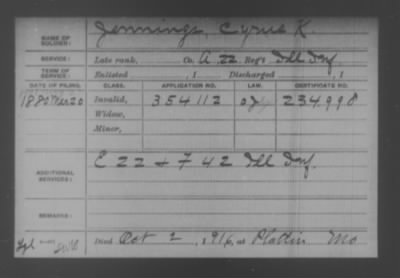 NAME OF SOLDIER: Jennings, Cyrus K.
SERVICE: Late rank, Co. A, 22 Reg't Ill Inf.
TERM OF SERVICE: Enlisted , 1 Discharged , 1
DATE OF FILING. CLASS. APPLICATION NO. LAW. CERTIFICATE NO.
1880 Mar 20 Invalid, 354112 234.998
Widow,
Minor,
ADDITIONAL SERVICES: C 22 & F 42 Ill Inf.
REMARKS:
Died Oct 2, 1916, at Plattin Mo